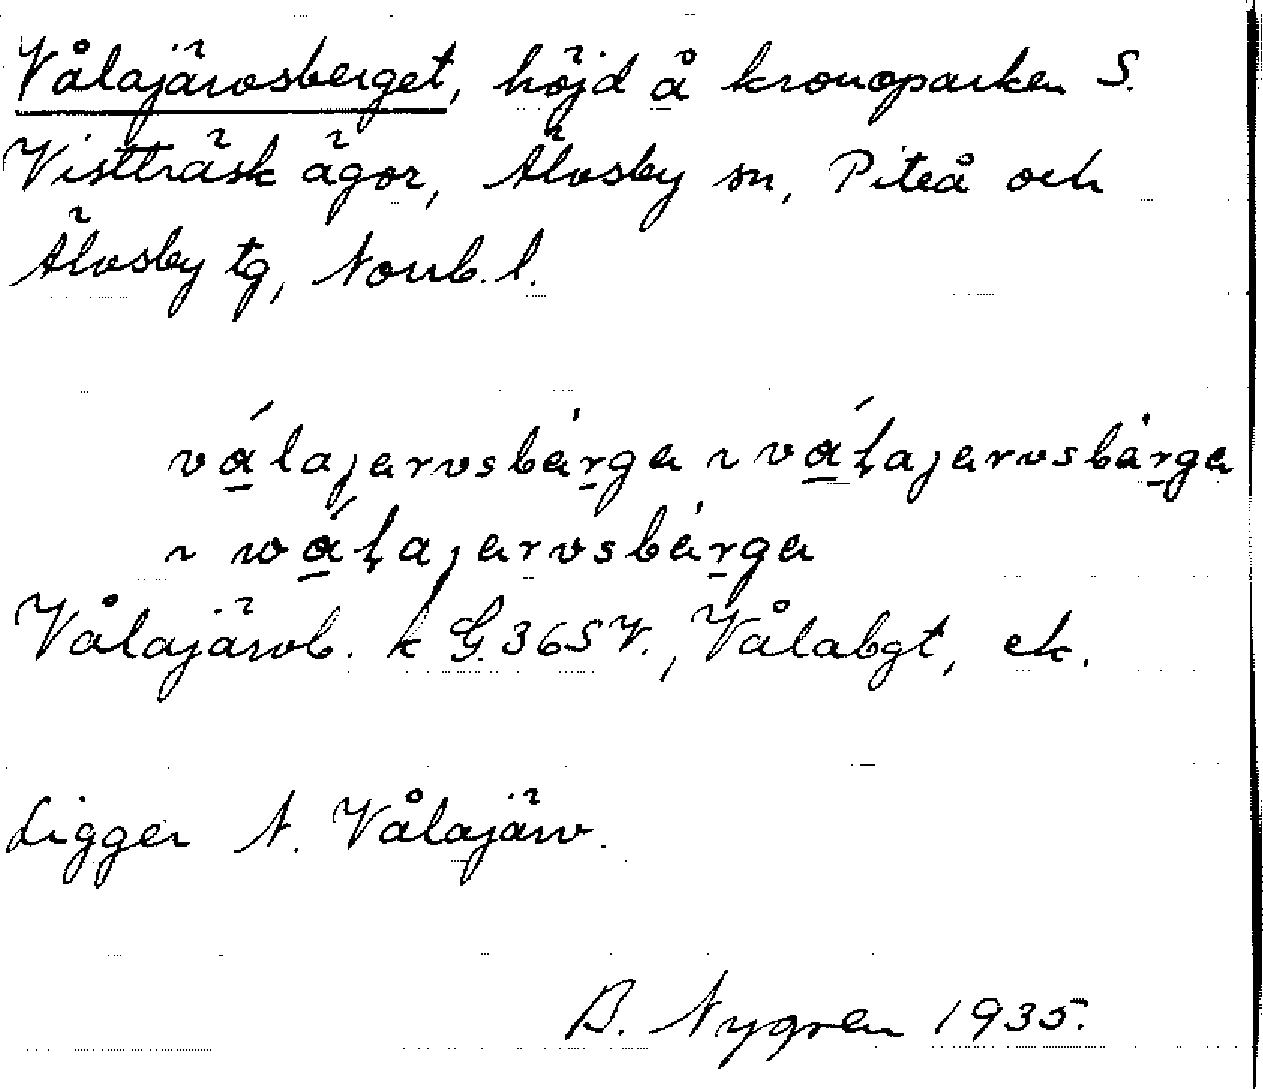 Vålajärvsberget, höjd å kronoparken S.
Vistträsk ägor, Älvsby sn, Piteå och
Älvsby tg, Norrb. l.
vа̲́lajarvsbár̲ga ~ vа̲́ļajarvsbár̲ga
~ wа̲́ļajarvsbár̲ga
Vålajärvb. k G. 365 V., Vålabgt, ek.
Ligger N. Vålajärv.
B. Nygren 1935.